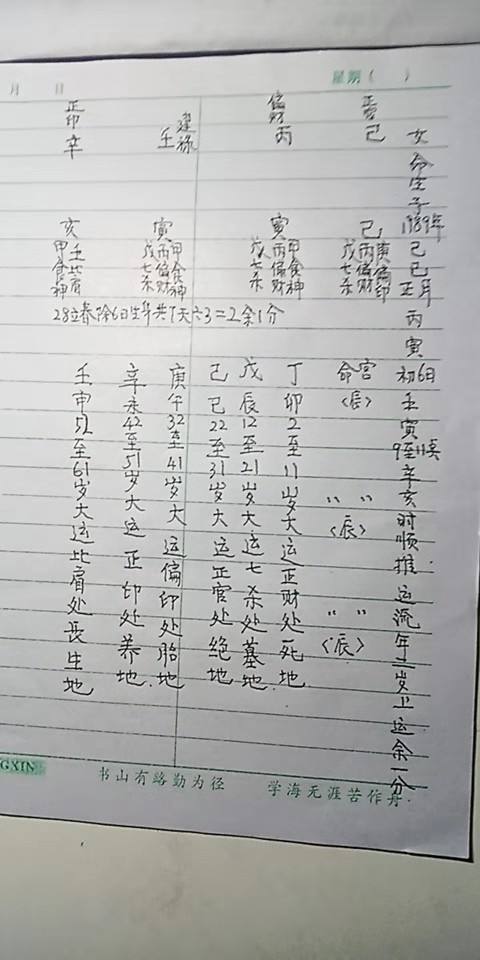 月 日 星期( )
女命生于1989年己巳正月丙寅初6日壬寅9至11点辛亥时顺推运流年二岁上运余一分
己
偏财 丙
建禄 壬
正印 辛
己 戊七杀 丙偏财 庚偏印
寅 戊七杀 甲食神
寅 戊七杀 丙偏财 甲食神
亥 甲食神 壬比肩
28立春除6日生年共7天六3=2余1分
命宫〈辰〉
〃 〃〈辰〉
〃 〃〈辰〉
丁卯2至11岁大运正财处死地
戊辰12至21岁大运七杀处墓地.
己巳22至31岁大运正官处绝地
庚午32至41岁大运偏印处胎地
辛未42至51岁大运正印处养地.
壬申52至61岁大运比肩处长生地
GXIN 书山有路勤为径 学海无涯苦作舟.